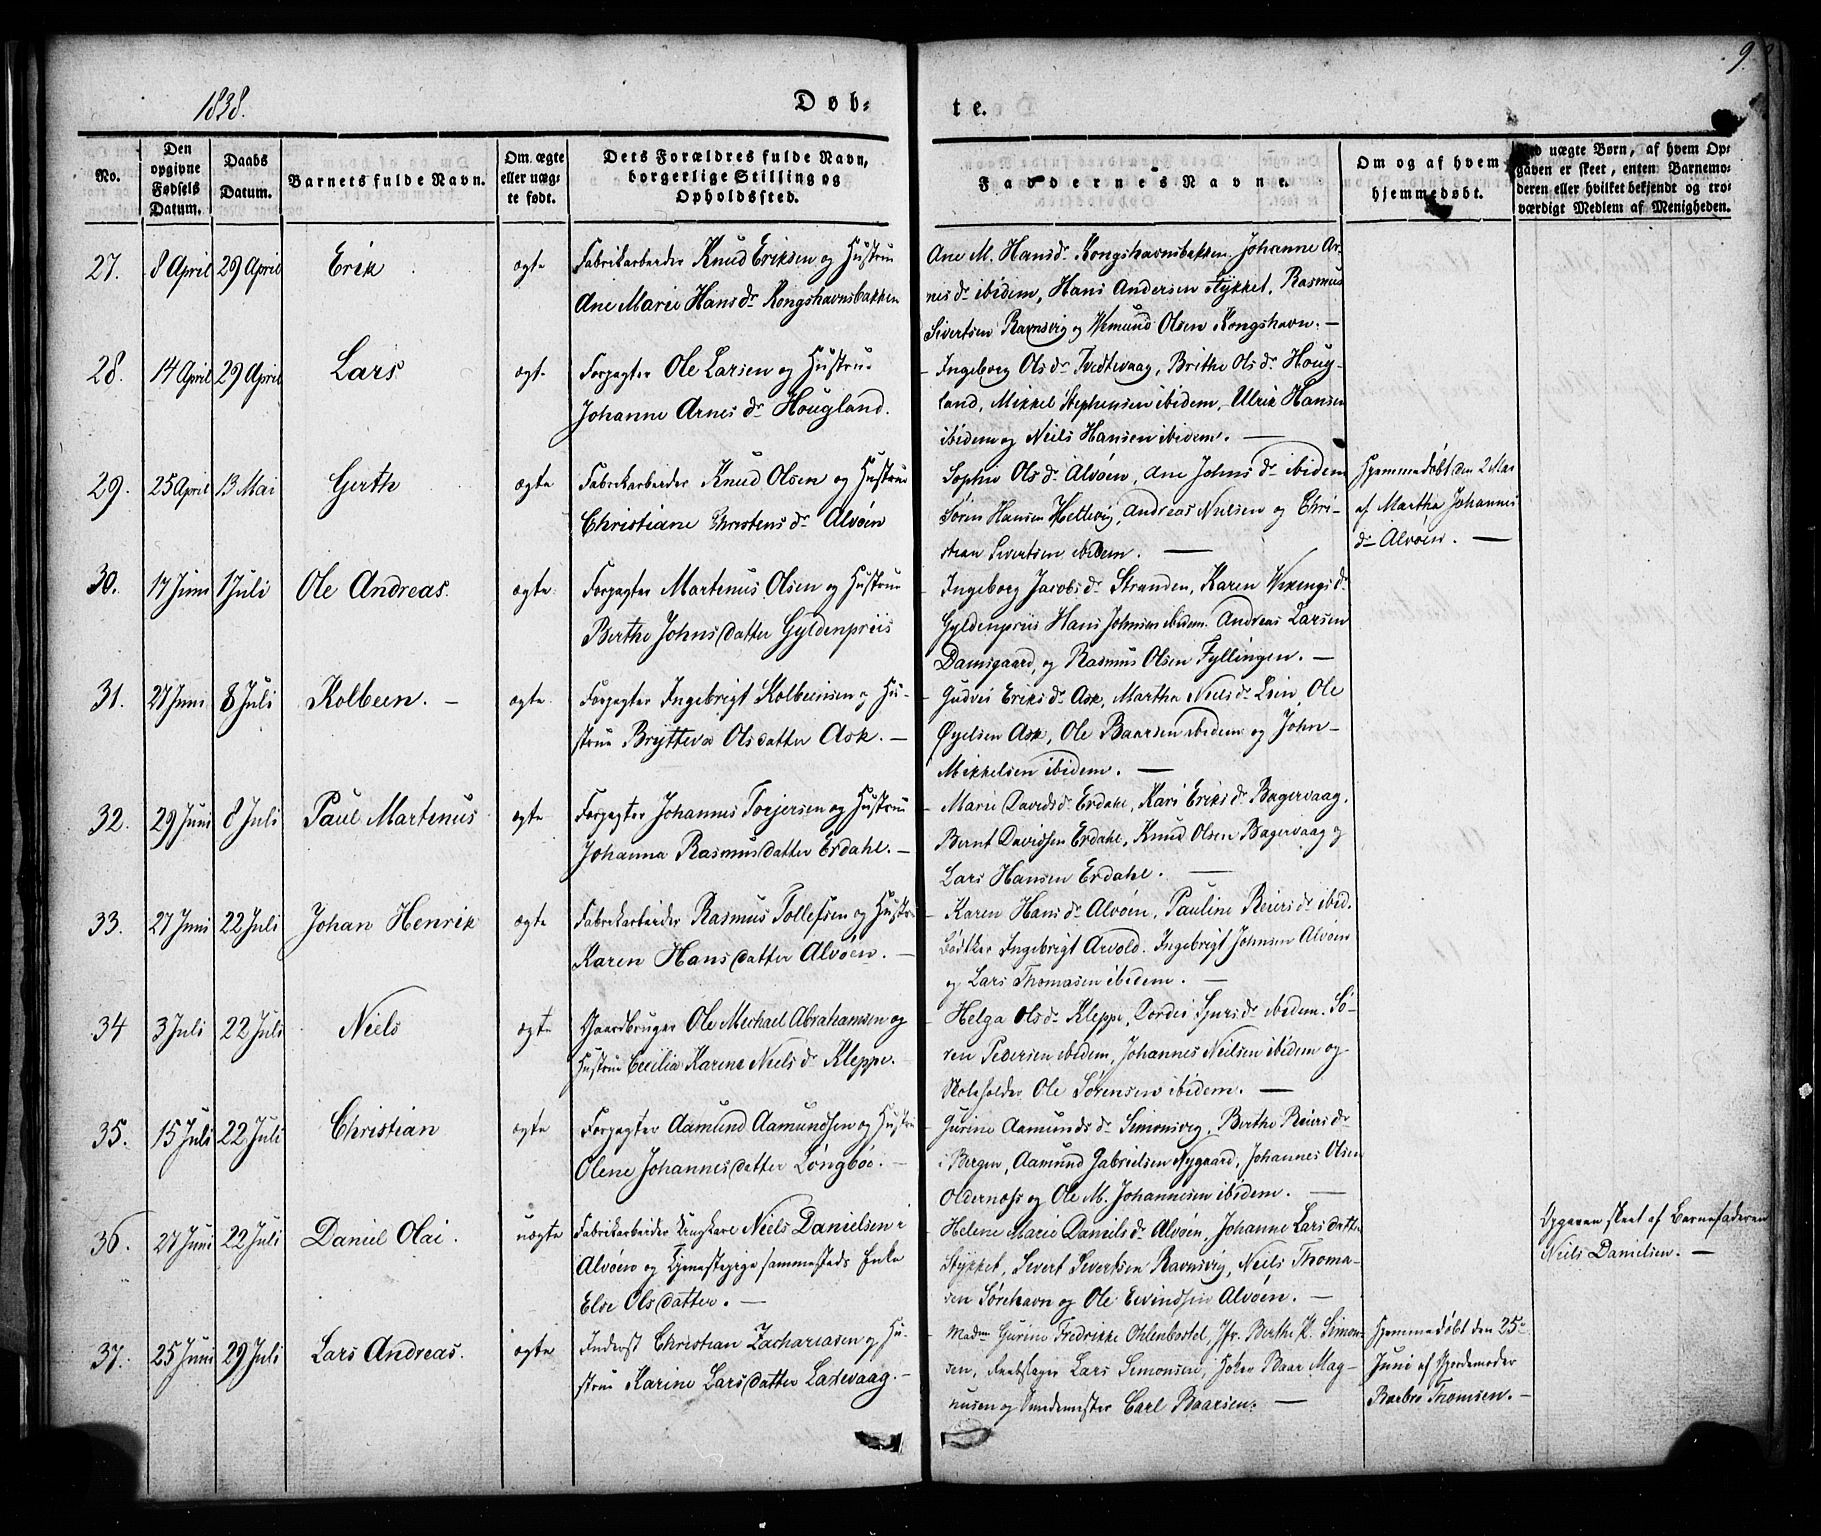 9.
1838.
Døb-
te.
No.
Den opgivne Fødsels Datum.
Daabs Datum.
Barnets fulde Navn.
Om ægte eller uægte født.
Dets Forældres fulde Navn, borgerlige Stilling og Opholdssted.
Faddernes Navne.
Om og af hvem hjemmedøbt.
uægte Børn, af hvem Opgaven er skeet, enten Barnemoderen eller hvilket bekjendt og troværdigt Medlem af Menigheden.
27. 8 April 29 April Erik ægte Fabrikarbeider Knud Eriksen og Hustrue
Ane Marie Hansdr Kongshavnsbakken
Ane M. Hansdr Kongshavnsbakken, Johanne Ar-
nesdr ibidem, Hans Andersen Stykket, Rasmus
Sivertsen Ravnsvig og Vemund Olsen Kongshavn. —
28. 14 April 29 April Lars ægte Forpagter Ole Larsen og Hustrue
Johanne Arnesdr Hougland.
Ingeborg Olsdr Tvedtevaag, Brithe Olsdr Houg-
land, Mikkel Stephensen ibidem, Ulrik Hansen
ibidem og Neils Hansen ibidem. —
29. 25 April 13 Mai Gerth ægte Fabrikarbeider Knud Olsen og Hustrue
Christiane Christensdr Alvøen
Sophie Olsdr Alvøen, Ane Johnsdr ibidem
Søren Hansen Hettevig, Andreas Nielsen og Chri-
stian Sivertsen ibidem. —
Hjemmedøbt den 2 Mai
af Martha Johannes
dr Alvøen. —
30. 17 Juni 1 Juli Ole Andreas. ægte Forpagter Martenus Olsen og Hustrue
Berthe Johnsdatter Gyldenpriis
Ingeborg Jacobsdr Stranden, Karen Vikingsdr
Gyldenpriis Hans Johnsen ibidem. Andreas Larsen
Damsgaard, og Rasmus Olsen Fyllingen. —
31. 27 Juni 8 Juli Kolbeen. — ægte Forpagter Ingebrigt Kolbeinsen og Hu-
strue Brytteva Olsdatter Ask. —
Gudvei Eriksdr Ask, Martha Nielsdr Lein, Ole
Øyelsen Ask, Ole Baarsen ibidem og John
Mikkelsen ibidem. —
32. 29 Juni 8 Juli Paul Martenus ægte Forpagter Johannes Torjersen og Hustrue
Johanna Rasmusdatter Erdahl. —
Marie Davidsdr Erdahl, Kari Eriksdr Bagervaag.
Bernt Davidsen Erdahl, Knud Olsen Bagervaag og
Lars Hansen Erdahl. —
33. 27 Juni 22 Juli Johan Henrik ægte Fabrikarbeider Rasmus Tollefsen og Hustru
Karen Hansdatter Alvøen. —
Karen Hansdr Alvøen, Pauline Reiersdr ibid.
Bødtker Ingebrigt Arvold. Ingebrigt Johnsen Alvøen
og Lars Thomasen ibidem. —
34 3 Juli 22 Juli Niels ægte Gaardbruger Ole Michael Abrahamsen og
Hustrue Cecilia Karine Nielsdr Kleppe.
Helga Olsdr Kleppe, Dordei Sjursdr ibidem. Sø-
ren Pedersen ibidem, Johannes Neilsen ibidem og
Skoleholder Ole Sørensen ibidem. —
35. 15 Juli 22 Juli Christian ægte Forpagter Aamund Aamundsen og Hustrue
Olene Johannesdatter Løngbøe. —
Gurine Aamundsdr Simonsvig, Berthe Reiersdr
i Bergen, Aamund Gabrielsen Nygaard, Johannes Olsen
Oldernæss og Ole M. Johannesen ibidem. —
36. 27 Juni 22 Juli Daniel Olai. uægte Fabrikarbeider Ungkare Niels Danielsen i
Alvøen og Tjenestepige sammesteds Enke
Else Olsdatter. —
Helene Marie Danielsdr Alvøen, Johanne Larsdatter
Stykket, Sivert Sivertsen Ravnsvig, Neils Thoma-
sen Sørehavn og Ole Eivindsen Alvøen. —
Opgaven skeet af Barnefaderen
Niels Danielsen. —
37. 25 Juni 29 Juli Lars Andreas. ægte Inderst Christian Zachariasen og Hu-
strue Karine Larsdatter Laxevaag. —
Madm Gurine Fredrikke Ohlenbostel, Jfr. Berthe K. Simon-
sen, Reebslager Lars Simonsen, Baar Mag-
nusen og Carl Baarsen. —
Hjemmedøbt den 25de
Juni af Gjordemoder
Barbro Thomsen. —